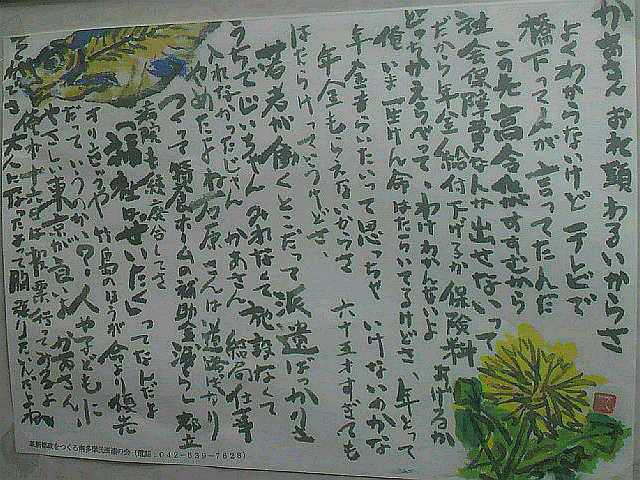 かあさん おれ頭わるいからさ
よくわからないけど テレビで
橋下って人が言ってたんだ
この先高令化がすすむから
社会保障費なんか出せないって
だから年金給付下げるか 保険料あげるか
どっちかえらべって わけわかんないよ
俺いま一生けん命はたらいてるけどさ、年とって
年金もらいたいって思っちゃ いけないのかな
年金もらえないからさ 六十五才すぎても
はたらけっていうけどさ、
若者が働くとこだって 派遣ばっかりさ
うちでじいちゃんみれなくて 施設なくて
入れなかったじゃん かあさん 結局仕事
やめたよね 石原さんは道路ばかり
つくって 老人ホームの補助金減らし 都立
病院も統廃合してさ
「福祉はぜいたく」ってんだよ
オリンピックや竹島のほうが 命より優先
だっていうのかい？ 人や子どもに
やさしい東京が良いよ かあさん
俺かずだけは投票行ってみるよ
大人になったよって胸張りたいんだよね
革新都政をつくる南多摩民医連の会（電話：042-639-7628）